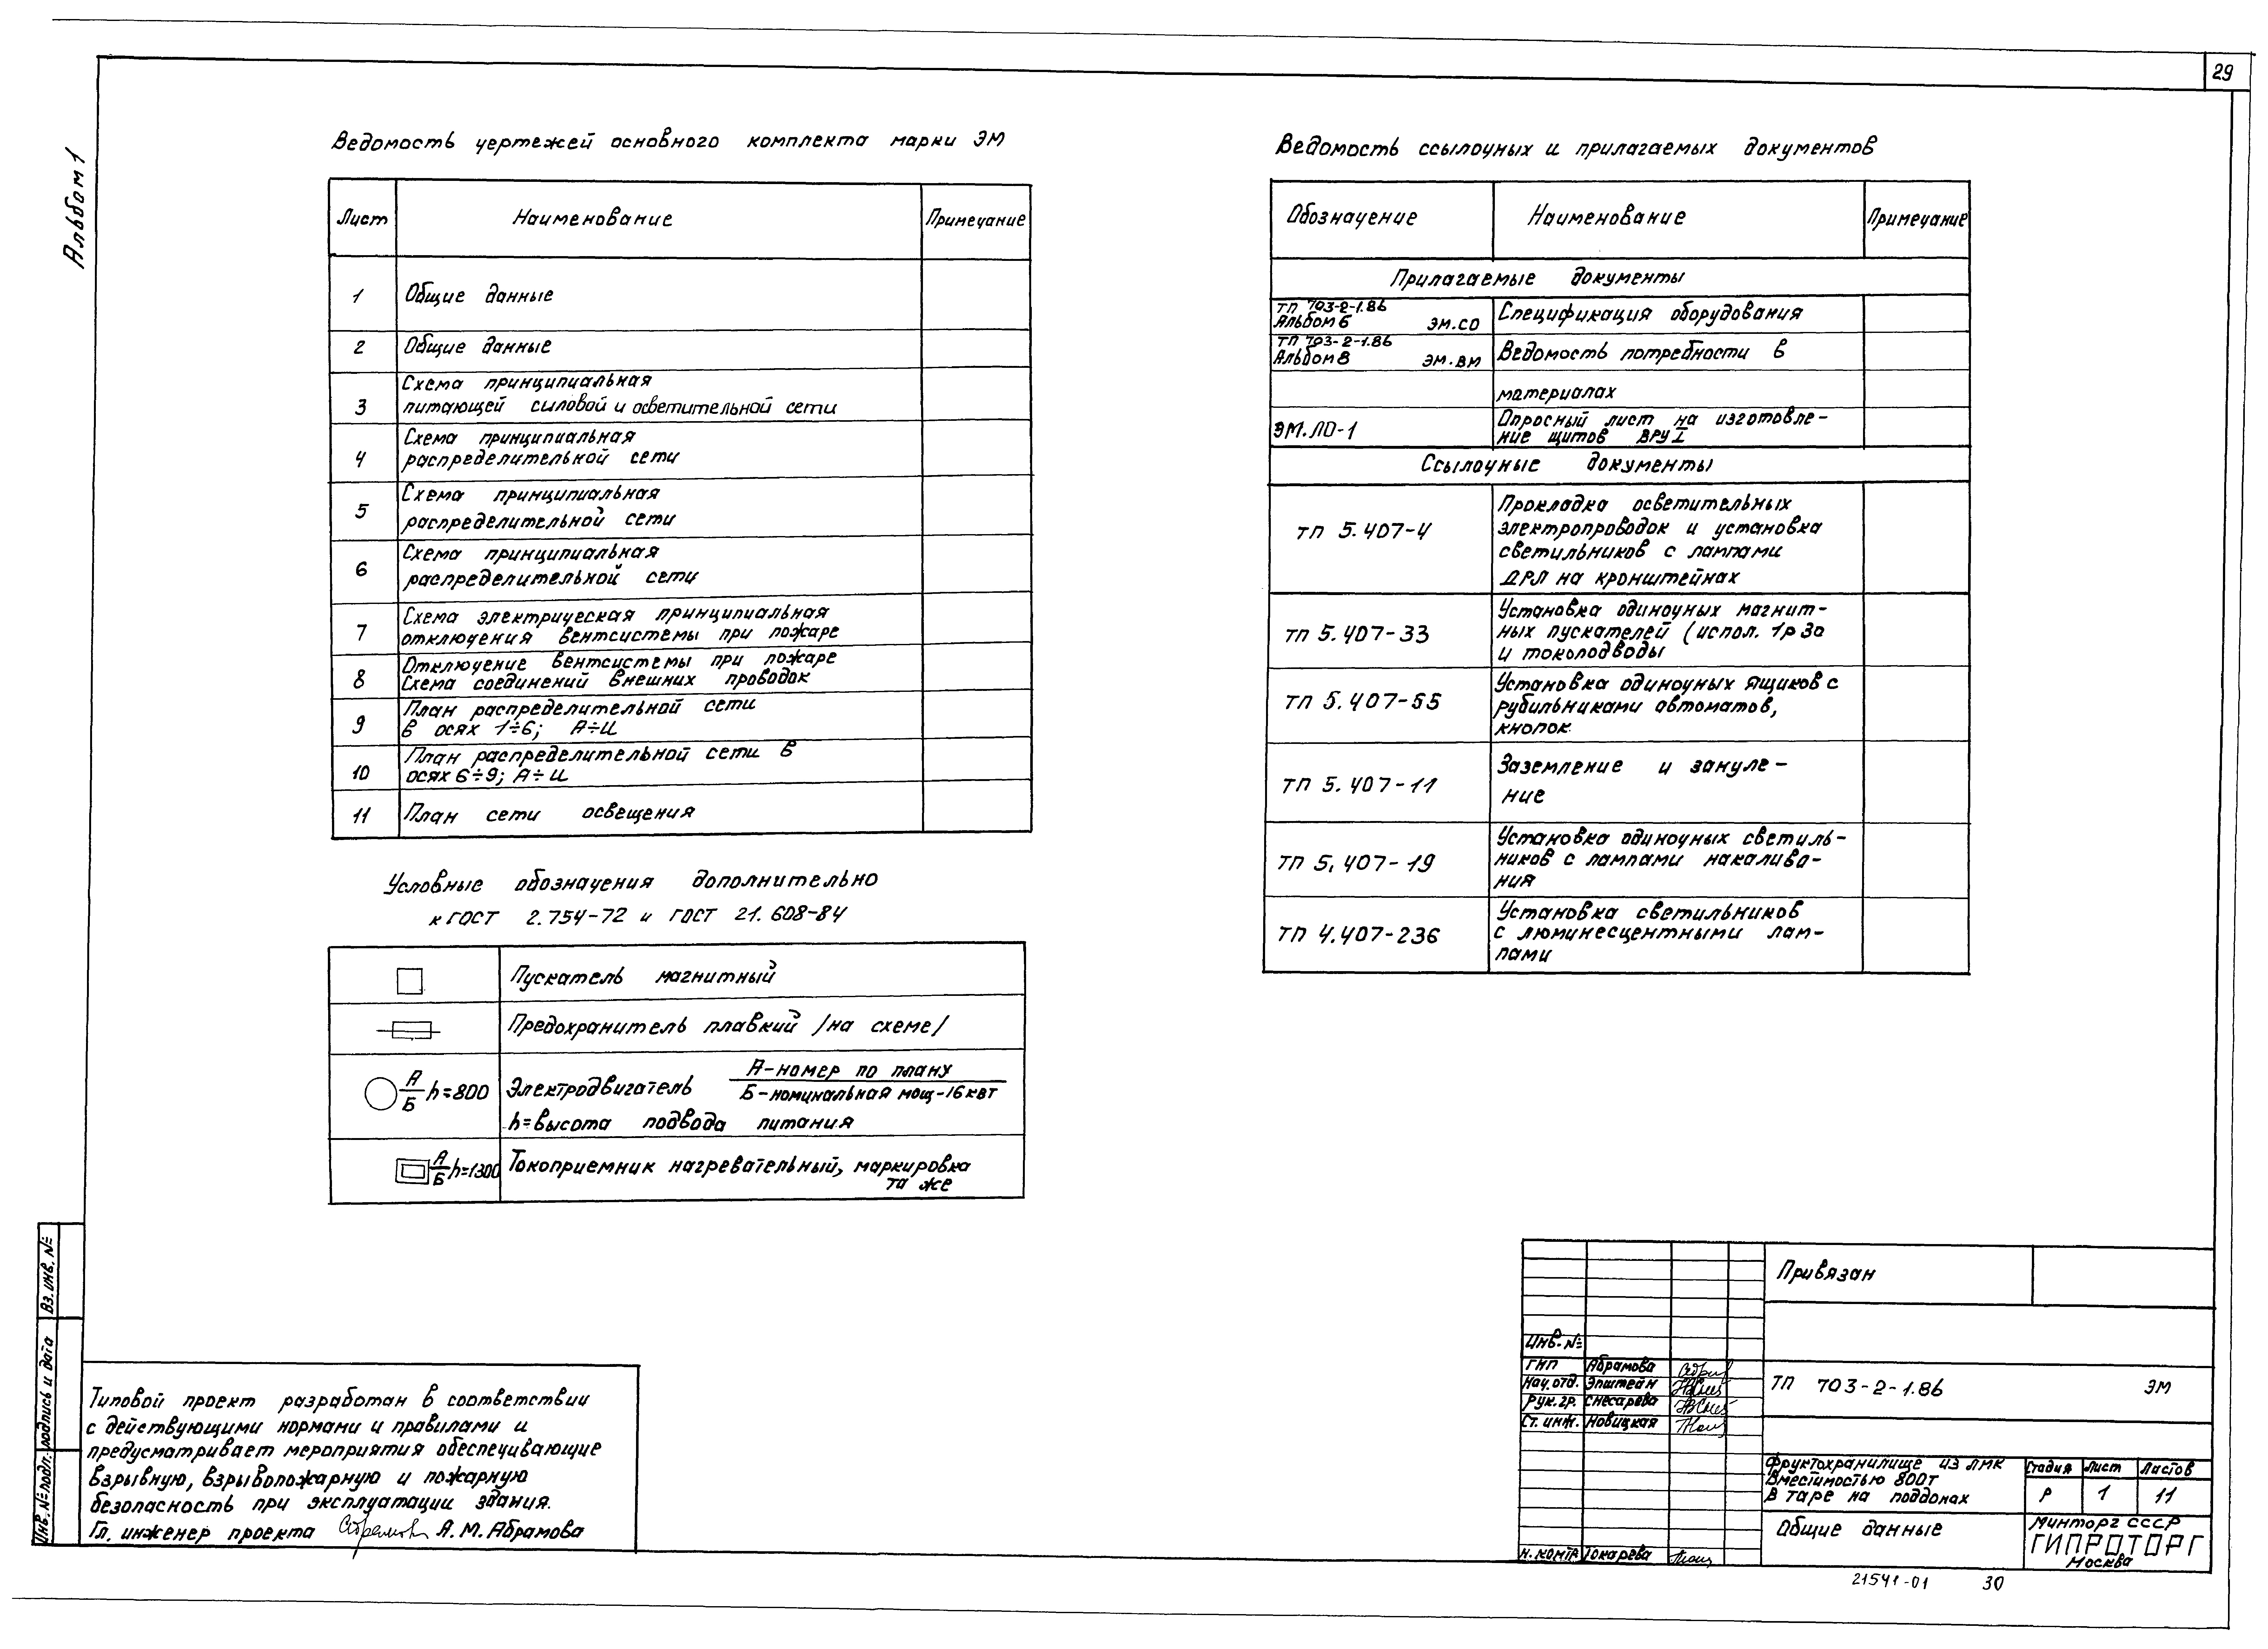 29
Альбом 1
Ведомость чертежей основного комплекта марки ЭМ
Лист Наименование Примечание
1 Общие данные
2 Общие данные
Схема принципиальная
3 питающей силовой и осветительной сети
Схема принципиальная
4 распределительной сети
Схема принципиальная
5 распределительной сети
Схема принципиальная
6 распределительной сети
Схема электрическая принципиальная
7 отключения вентсистемы при пожаре
Отключение вентсистемы при пожаре
8 Схема соединений внешних проводок
План распределительной сети
9 в осях 1÷6; А÷И
План распределительной сети в
10 осях 6÷9; А÷И
11 План сети освещения
Условные обозначения дополнительно
к ГОСТ 2.754-72 и ГОСТ 21.608-84
Пускатель магнитный
Предохранитель плавкий /на схеме/
А/Б h=800 Электродвигатель А-номер по плану
Б-номинальная мощ-16квт
h=высота подвода питания
А/Б h=1300 Токоприемник нагревательный, маркировка
та же
Ведомость ссылочных и прилагаемых документов
Обозначение Наименование Примечание
Прилагаемые документы
ТП 703-2-1.86
Альбом 6 ЭМ.СО Спецификация оборудования
ТП 703-2-1.86
Альбом 8 ЭМ.ВМ Ведомость потребности в
материалах
ЭМ.ЛО-1 Опросный лист на изготовле-
ние щитов ВРУ I
Ссылочные документы
ТП 5.407-4 Прокладка осветительных
электропроводок и установка
светильников с лампами
ДРЛ на кронштейнах
ТП 5.407-33 Установка одиночных магнит-
ных пускателей (испол. 1р30
и токоподводы
ТП 5.407-55 Установка одиночных ящиков с
рубильниками автоматов,
кнопок
ТП 5.407-11 Заземление и зануле-
ние
ТП 5.407-19 Установка одиночных светиль-
ников с лампами накалива-
ния
ТП 4.407-236 Установка светильников
с люминесцентными лам-
пами
Вз. инв. №
Подпись и дата
Инв. № подл.
Типовой проект разработан в соответствии
с действующими нормами и правилами и
предусматривает мероприятия обеспечивающие
взрывную, взрывопожарную и пожарную
безопасность при эксплуатации здания.
Гл. инженер проекта А.М. Абрамова
Привязан
Инв. №
ГИП Абрамова
Нач. отд. Эпштейн
Рук. гр. Снесарева
Ст. инж. Новицкая
Н. контр Токарева
ТП 703-2-1.86 ЭМ
Фруктохранилище из ЛМК
вместимостью 800т
в таре на поддонах
Стадия Лист Листов
Р 1 11
Общие данные
Минторг СССР
ГИПРОТОРГ
Москва
21541-01 30